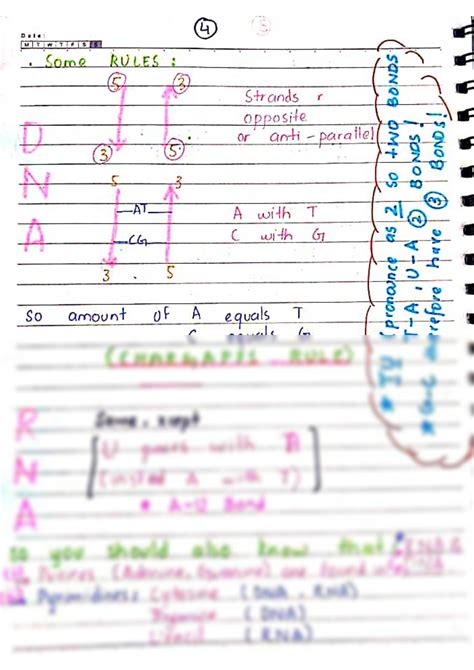 4
Date:
M T W T F S S
. Some RULES :
5 3
Strands r
opposite
or anti-parallel
3 5
DNA
5 3
AT
A with T
CG
C with G
3 . 5
So amount of A equals T
C equals G
(CHARGAFFS RULE)
RNA
U pairs with A
A with T)
* A-U Bond
So you should also know that
Purines (Adenine, Guanine) are found in
Pyrimidines: Cytosine (DNA, RNA)
Thymine (DNA)
Uracil (RNA)
* TU (pronounce as 2 So two BONDS
T-A, U-A 2 BONDS!
* G-C therefore have 3 BONDS!